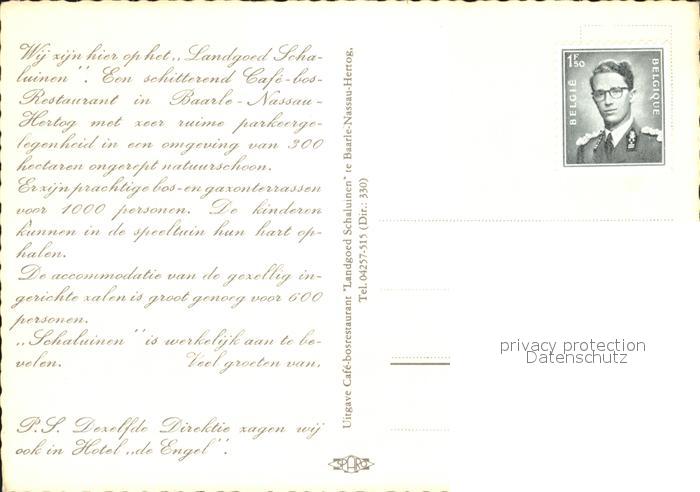 Wij zijn hier op het „Landgoed Scha-
luinen". Een schitterend Café-bos-
Restaurant in Baarle-Nassau-
Hertog met zeer ruime parkeerge-
legenheid in een omgeving van 300
hectaren ongerept natuurschoon.
Er zijn prachtige bos- en gazonterrassen
voor 1000 personen. De kinderen
kunnen in de speeltuin hun hart op-
halen.
De accommodatie van de gezellig in-
gerichte zalen is groot genoeg voor 600
personen.
„Schaluinen" is werkelijk aan te be-
velen. Veel groeten van.
P.S. Dezelfde Direktie zagen wij
ook in Hotel „de Engel".
Uitgave Café-bosrestaurant "Landgoed Schaluinen" te Baarle-Nassau-Hertog,
Tel. 04257-515 (Dir.: 330)
SPARO
1F50
BELGIE
BELGIQUE
privacy protection
Datenschutz